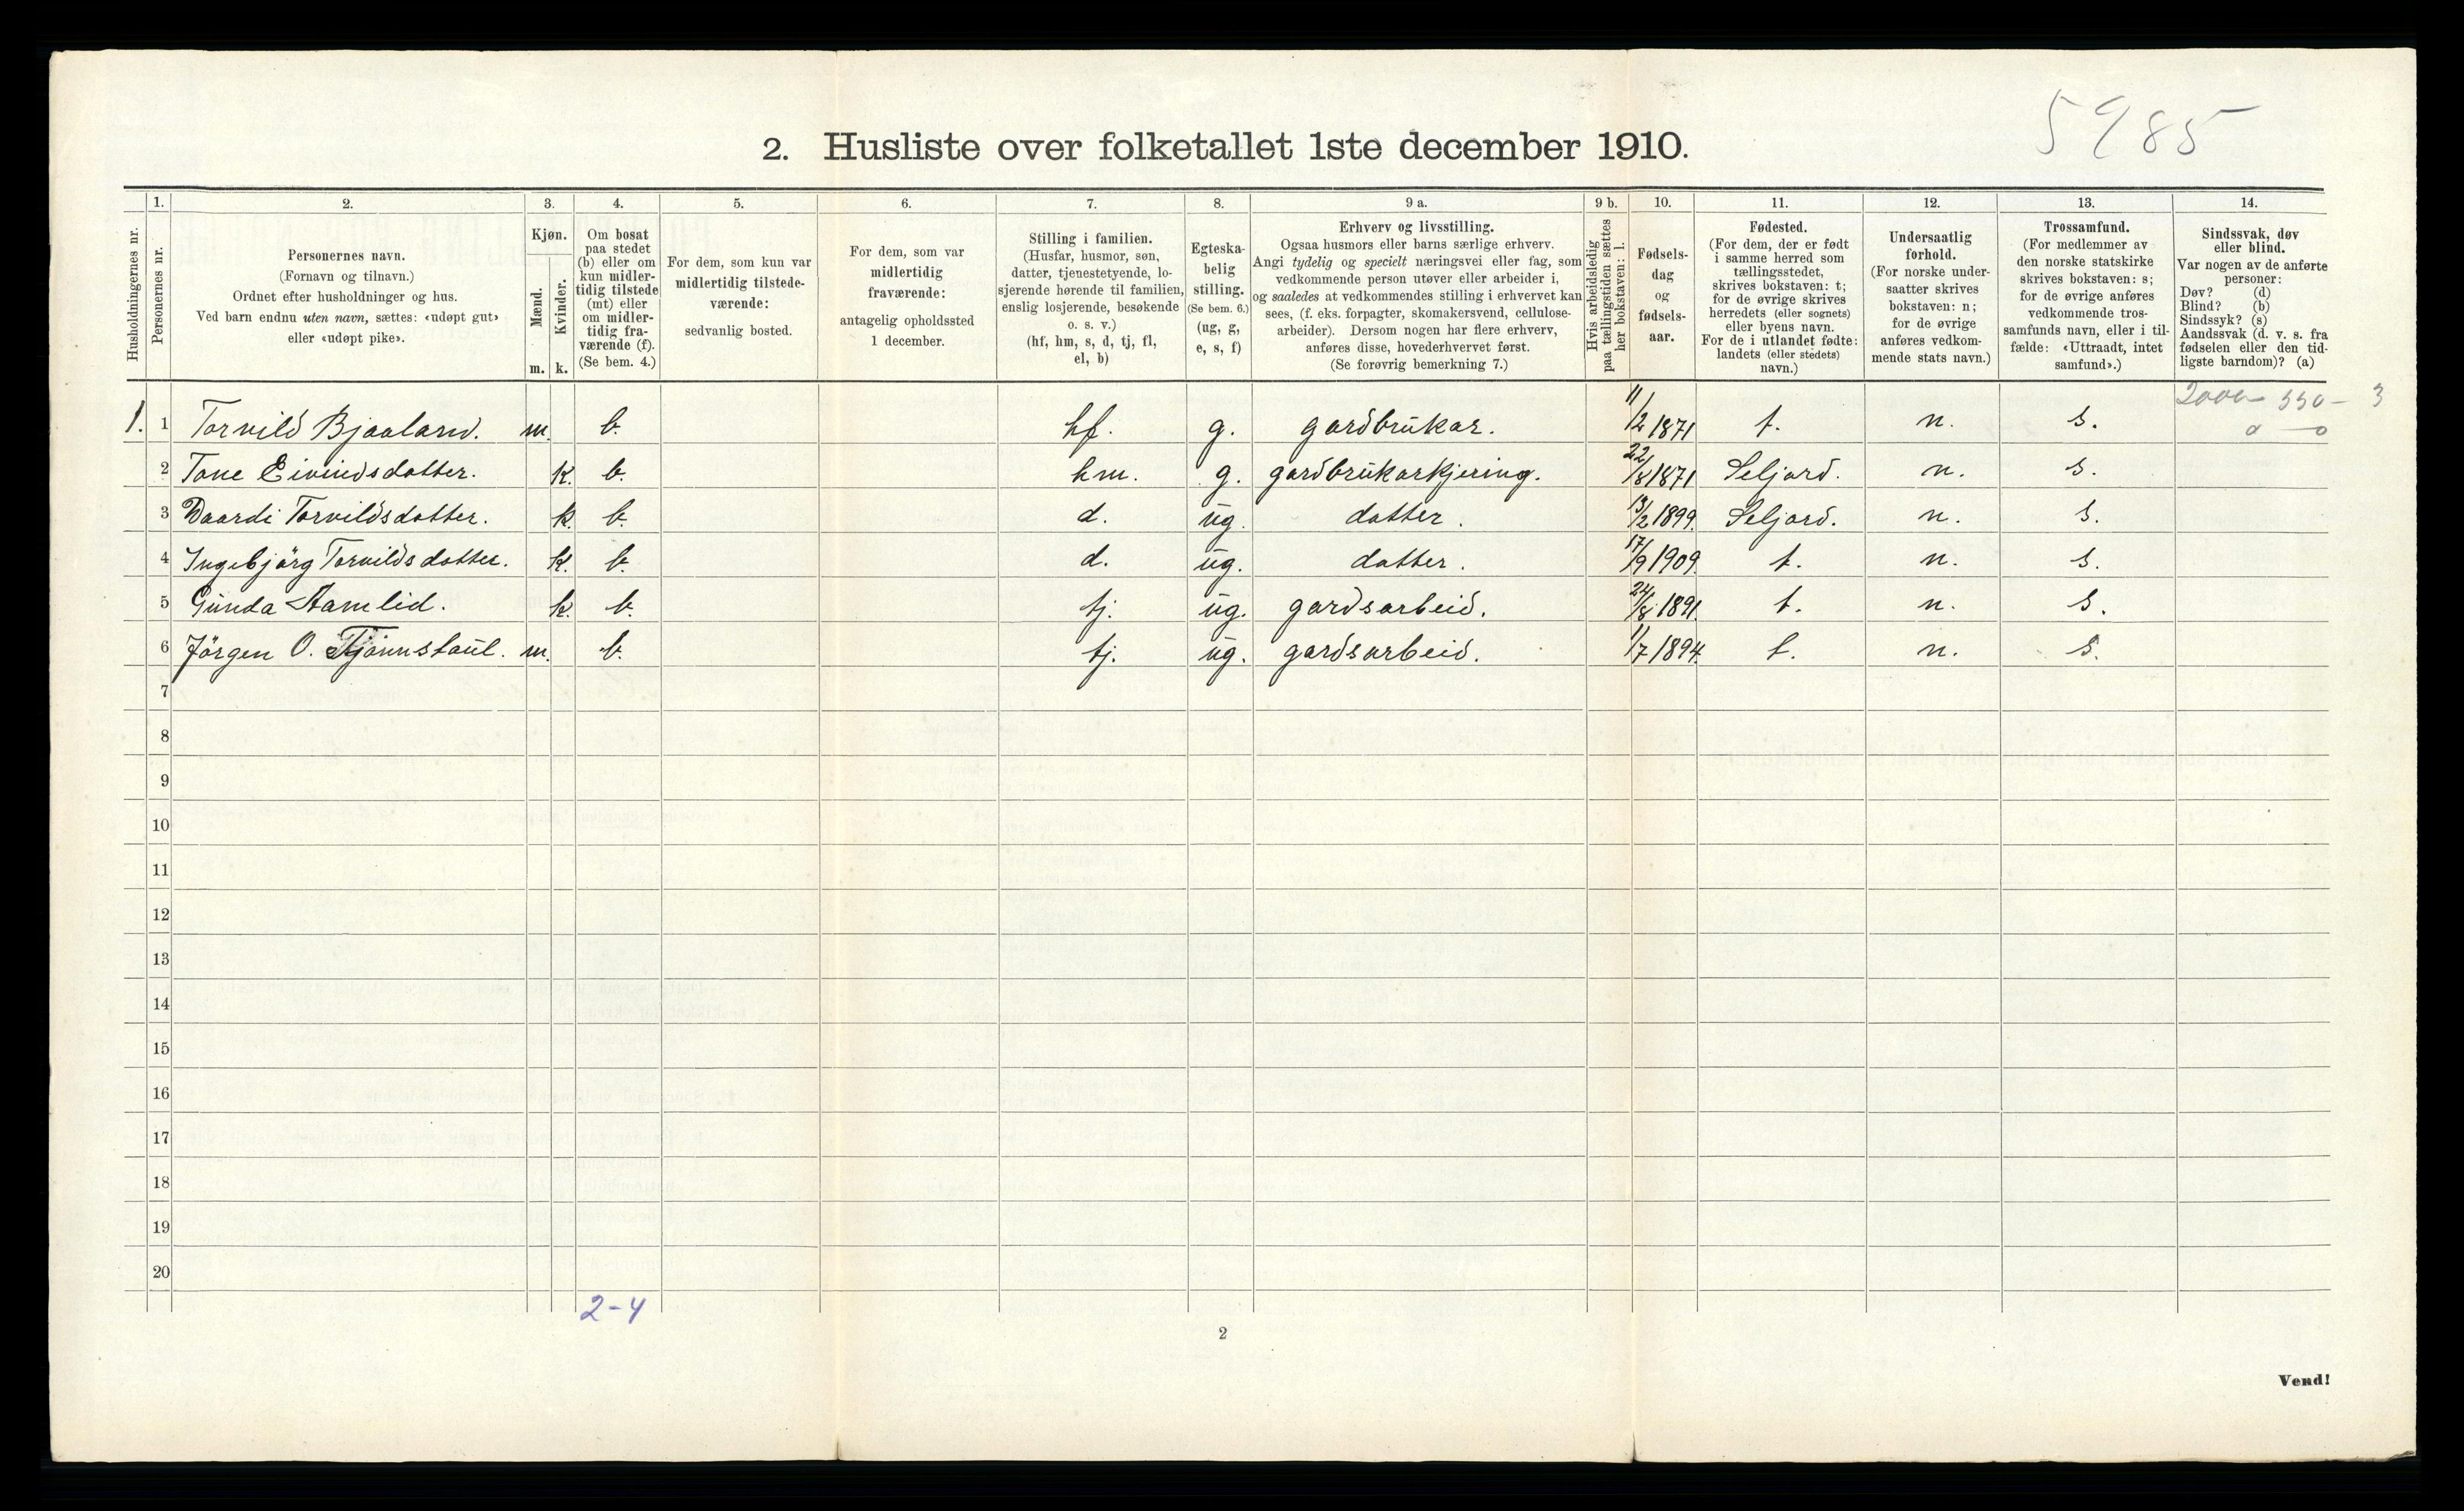 5985
2. Husliste over folketallet 1ste december 1910.
Husholdningernes nr.
1.
Personernes nr.
2.
Personernes navn.
(Fornavn og tilnavn.)
Ordnet efter husholdninger og hus.
Ved barn endnu uten navn, sættes: «udøpt gut»
eller «udøpt pike».
3.
Kjøn.
Mænd.
Kvinder.
m. k.
4.
Om bosat
paa stedet
(b) eller om
kun midler-
tidig tilstede
(mt) eller
om midler-
tidig fra-
værende (f).
(Se bem. 4.)
5.
For dem, som kun var
midlertidig tilstede-
værende:
sedvanlig bosted.
6.
For dem, som var
midlertidig
fraværende:
antagelig opholdssted
1 december.
7.
Stilling i familien.
(Husfar, husmor, søn,
datter, tjenestetyende, lo-
sjerende hørende til familien,
enslig losjerende, besøkende
o. s. v.)
(hf, hm, s, d, tj, fl,
el, b)
8.
Egteska-
belig
stilling.
(Se bem. 6.)
(ug, g,
e, s, f)
9 a.
Erhverv og livsstilling.
Ogsaa husmors eller barns særlige erhverv.
Angi tydelig og specielt næringsvei eller fag, som
vedkommende person utøver eller arbeider i,
og saaledes at vedkommendes stilling i erhvervet kan
sees, (f. eks. forpagter, skomakersvend, cellulose-
arbeider). Dersom nogen har flere erhverv,
anføres disse, hovederhvervet først.
(Se forøvrig bemerkning 7.)
9 b.
Hvis arbeidsledig
paa tællingstiden sættes
her bokstaven: l.
10.
Fødsels-
dag
og
fødsels-
aar.
11.
Fødested.
(For dem, der er født
i samme herred som
tællingsstedet,
skrives bokstaven: t;
for de øvrige skrives
herredets (eller sognets)
eller byens navn.
For de i utlandet fødte:
landets (eller stedets)
navn.)
12.
Undersaatlig
forhold.
(For norske under-
saatter skrives
bokstaven: n;
for de øvrige
anføres vedkom-
mende stats navn.)
13.
Trossamfund.
(For medlemmer av
den norske statskirke
skrives bokstaven: s;
for de øvrige anføres
vedkommende tros-
samfunds navn, eller i til-
fælde: «Uttraadt, intet
samfund».)
14.
Sindssvak, døv
eller blind.
Var nogen av de anførte
personer:
Døv? (d)
Blind? (b)
Sindssyk? (s)
Aandssvak (d. v. s. fra
fødselen eller den tid-
ligste barndom)? (a)
1. 1 Torvild Bjaaland. m. b. hf. g. gardbrukar. 11/2 1871 t. n. s.
2 Tone Eivindsdotter. k. b. hm. g. gardbrukarkjering. 22/8 1871 Seljord. n. s.
3 Daardi Torvildsdotter. k. b. d. ug. dotter. 13/2 1899. Seljord. n. s.
4 Ingebjörg Torvildsdotter. k. b. d. ug. dotter. 17/9 1909. t. n. s.
5 Gunda Aamlid. k. b. tj. ug. gardsarbeid. 24/8 1891. t. n. s.
6 Jörgen O. Tjönnstaul. m. b. tj. ug. gardsarbeid. 1/7 1894. t. n. s.
7
8
9
10
11
12
13
14
15
16
17
18
19
20
2-4
2
Vend!